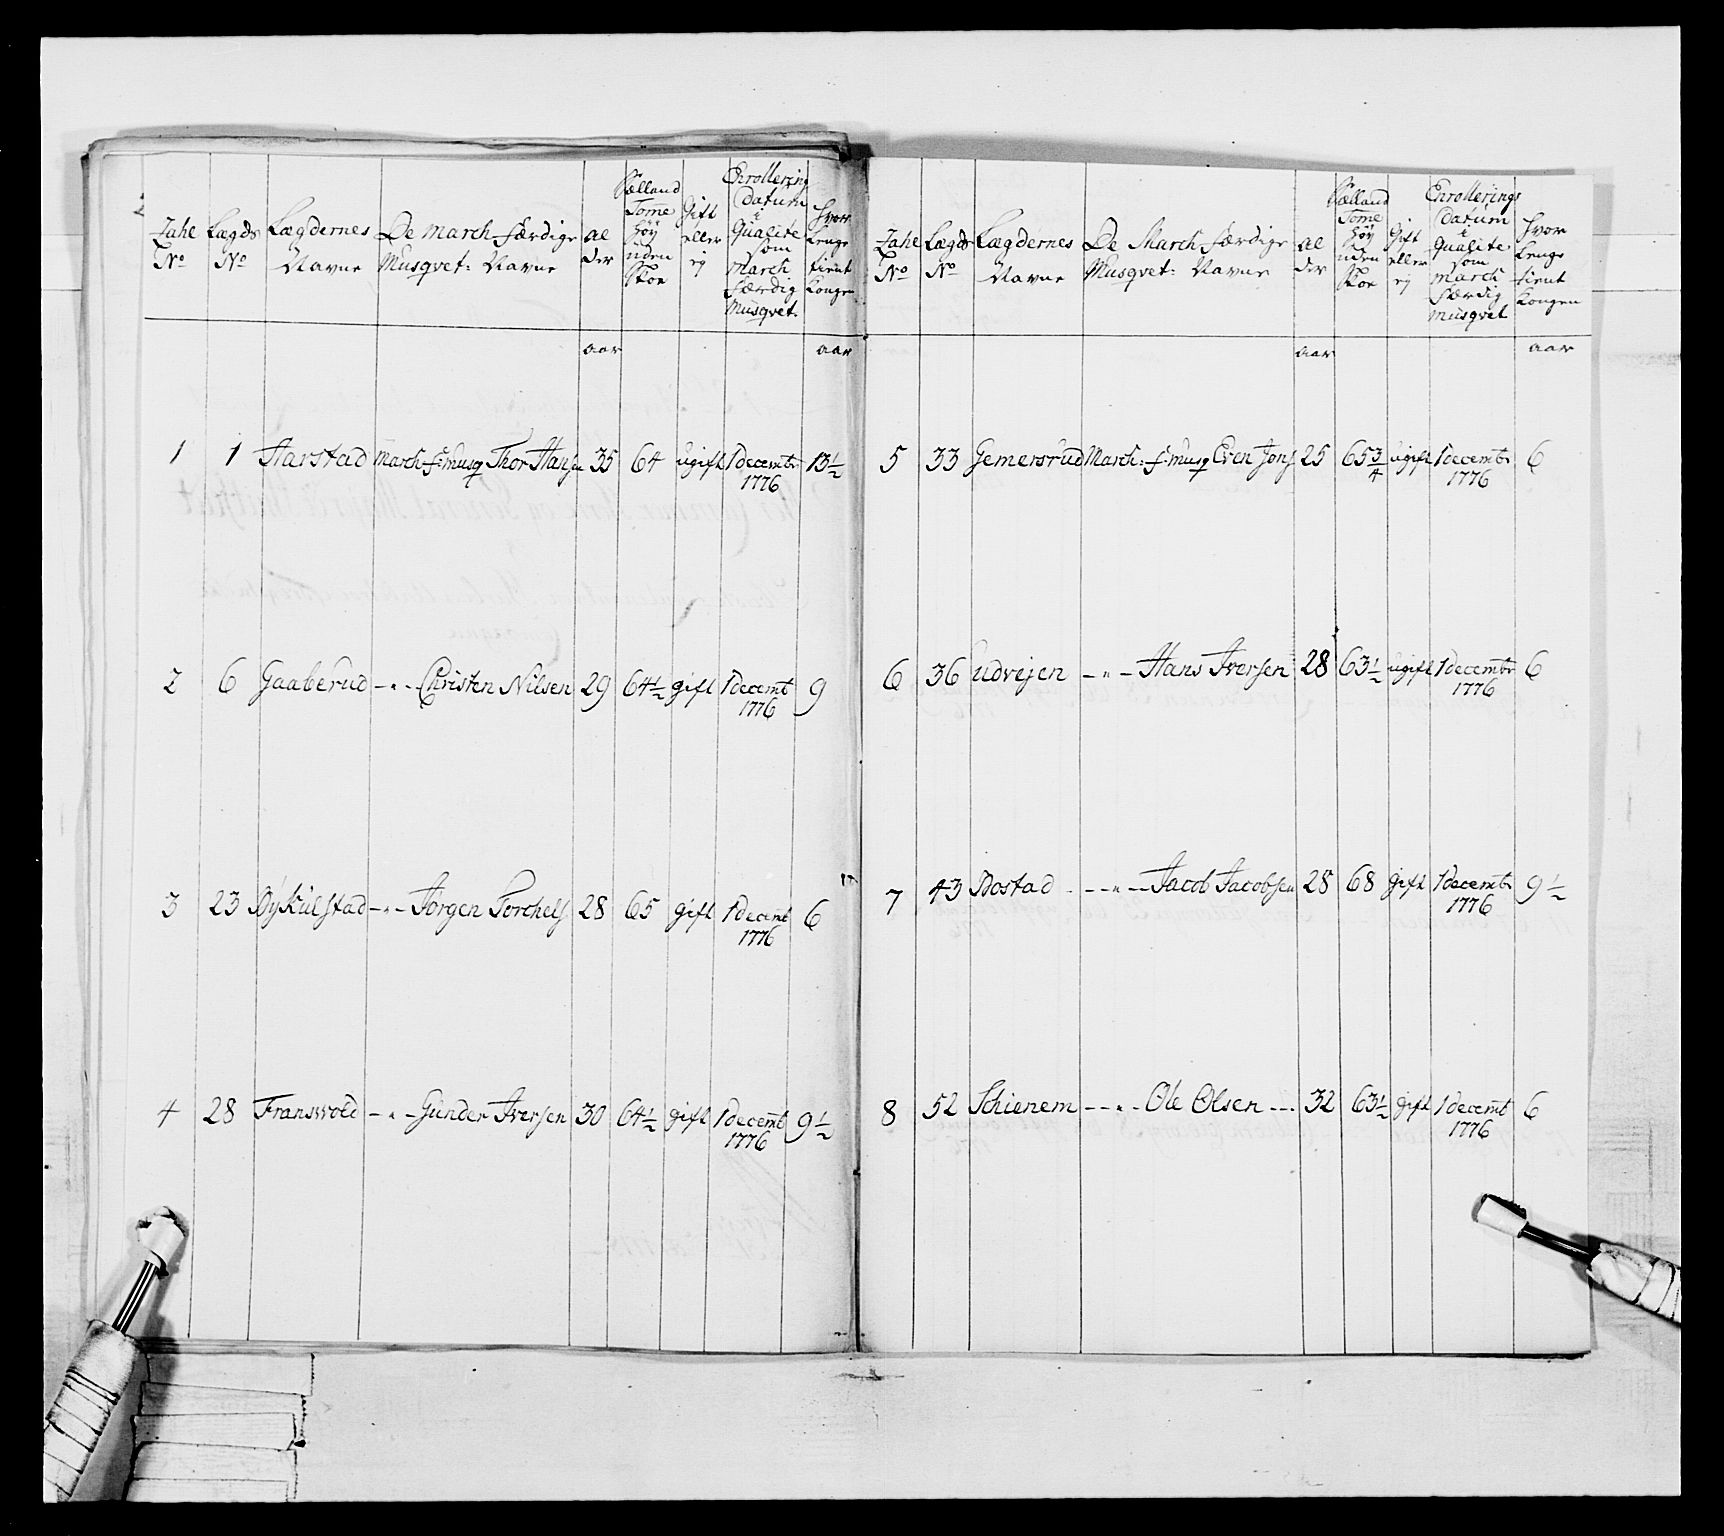 Tahl No | Lægds No | Lægdernes Navne | De March færdige Musqvet: Navne | al der | Siælland Tome Høy uden Skoe | Gift eller ej | Enrollering Datum i Qualite som March færdig Musqvet. | Hvor Lenge tient Kongen
aar | aar
1 | 1 | Aarstad | March: f: Musq Thor Hansen | 35 | 64 | ugift | 1 decembr 1776 | 13½
2 | 6 | Gaaberud | – " – Christen Nilsen | 29 | 64½ | gift | 1 decembt 1776 | 9
3 | 23 | Bykulstad | – " – Jörgen Torchels | 28 | 65 | gift | 1 decembt 1776 | 6
4 | 28 | Franswold | – " – Gunder Iversen | 30 | 64½ | gift | 1 decembt 1776 | 9½
Tahl No | Lægds No | Lægdernes Navne | De March færdige Musqvet: Navne | al der | Siælland Tome Høy uden Skoe | Gift eller ej | Enrollerings Datum i Qualite som March færdig Musqvet | Hvor Lenge tient Kongen
aar | aar
5 | 33 | Gemersrud | March: f: Musq Even Jons | 25 | 65¾ | ugift | 1 decembr 1776 | 6
6 | 36 | Udvejen | – " – Hans Iversen | 28 | 63½ | ugift | 1 decembr 1776 | 6
7 | 43 | Bostad | – – " – Jacob Jacobsen | 28 | 68 | gift | 1 decembr 1776 | 9½
8 | 52 | Schienem | – – " – Ole Olsen – – – | 32 | 63½ | gift | 1 decembt 1776 | 6